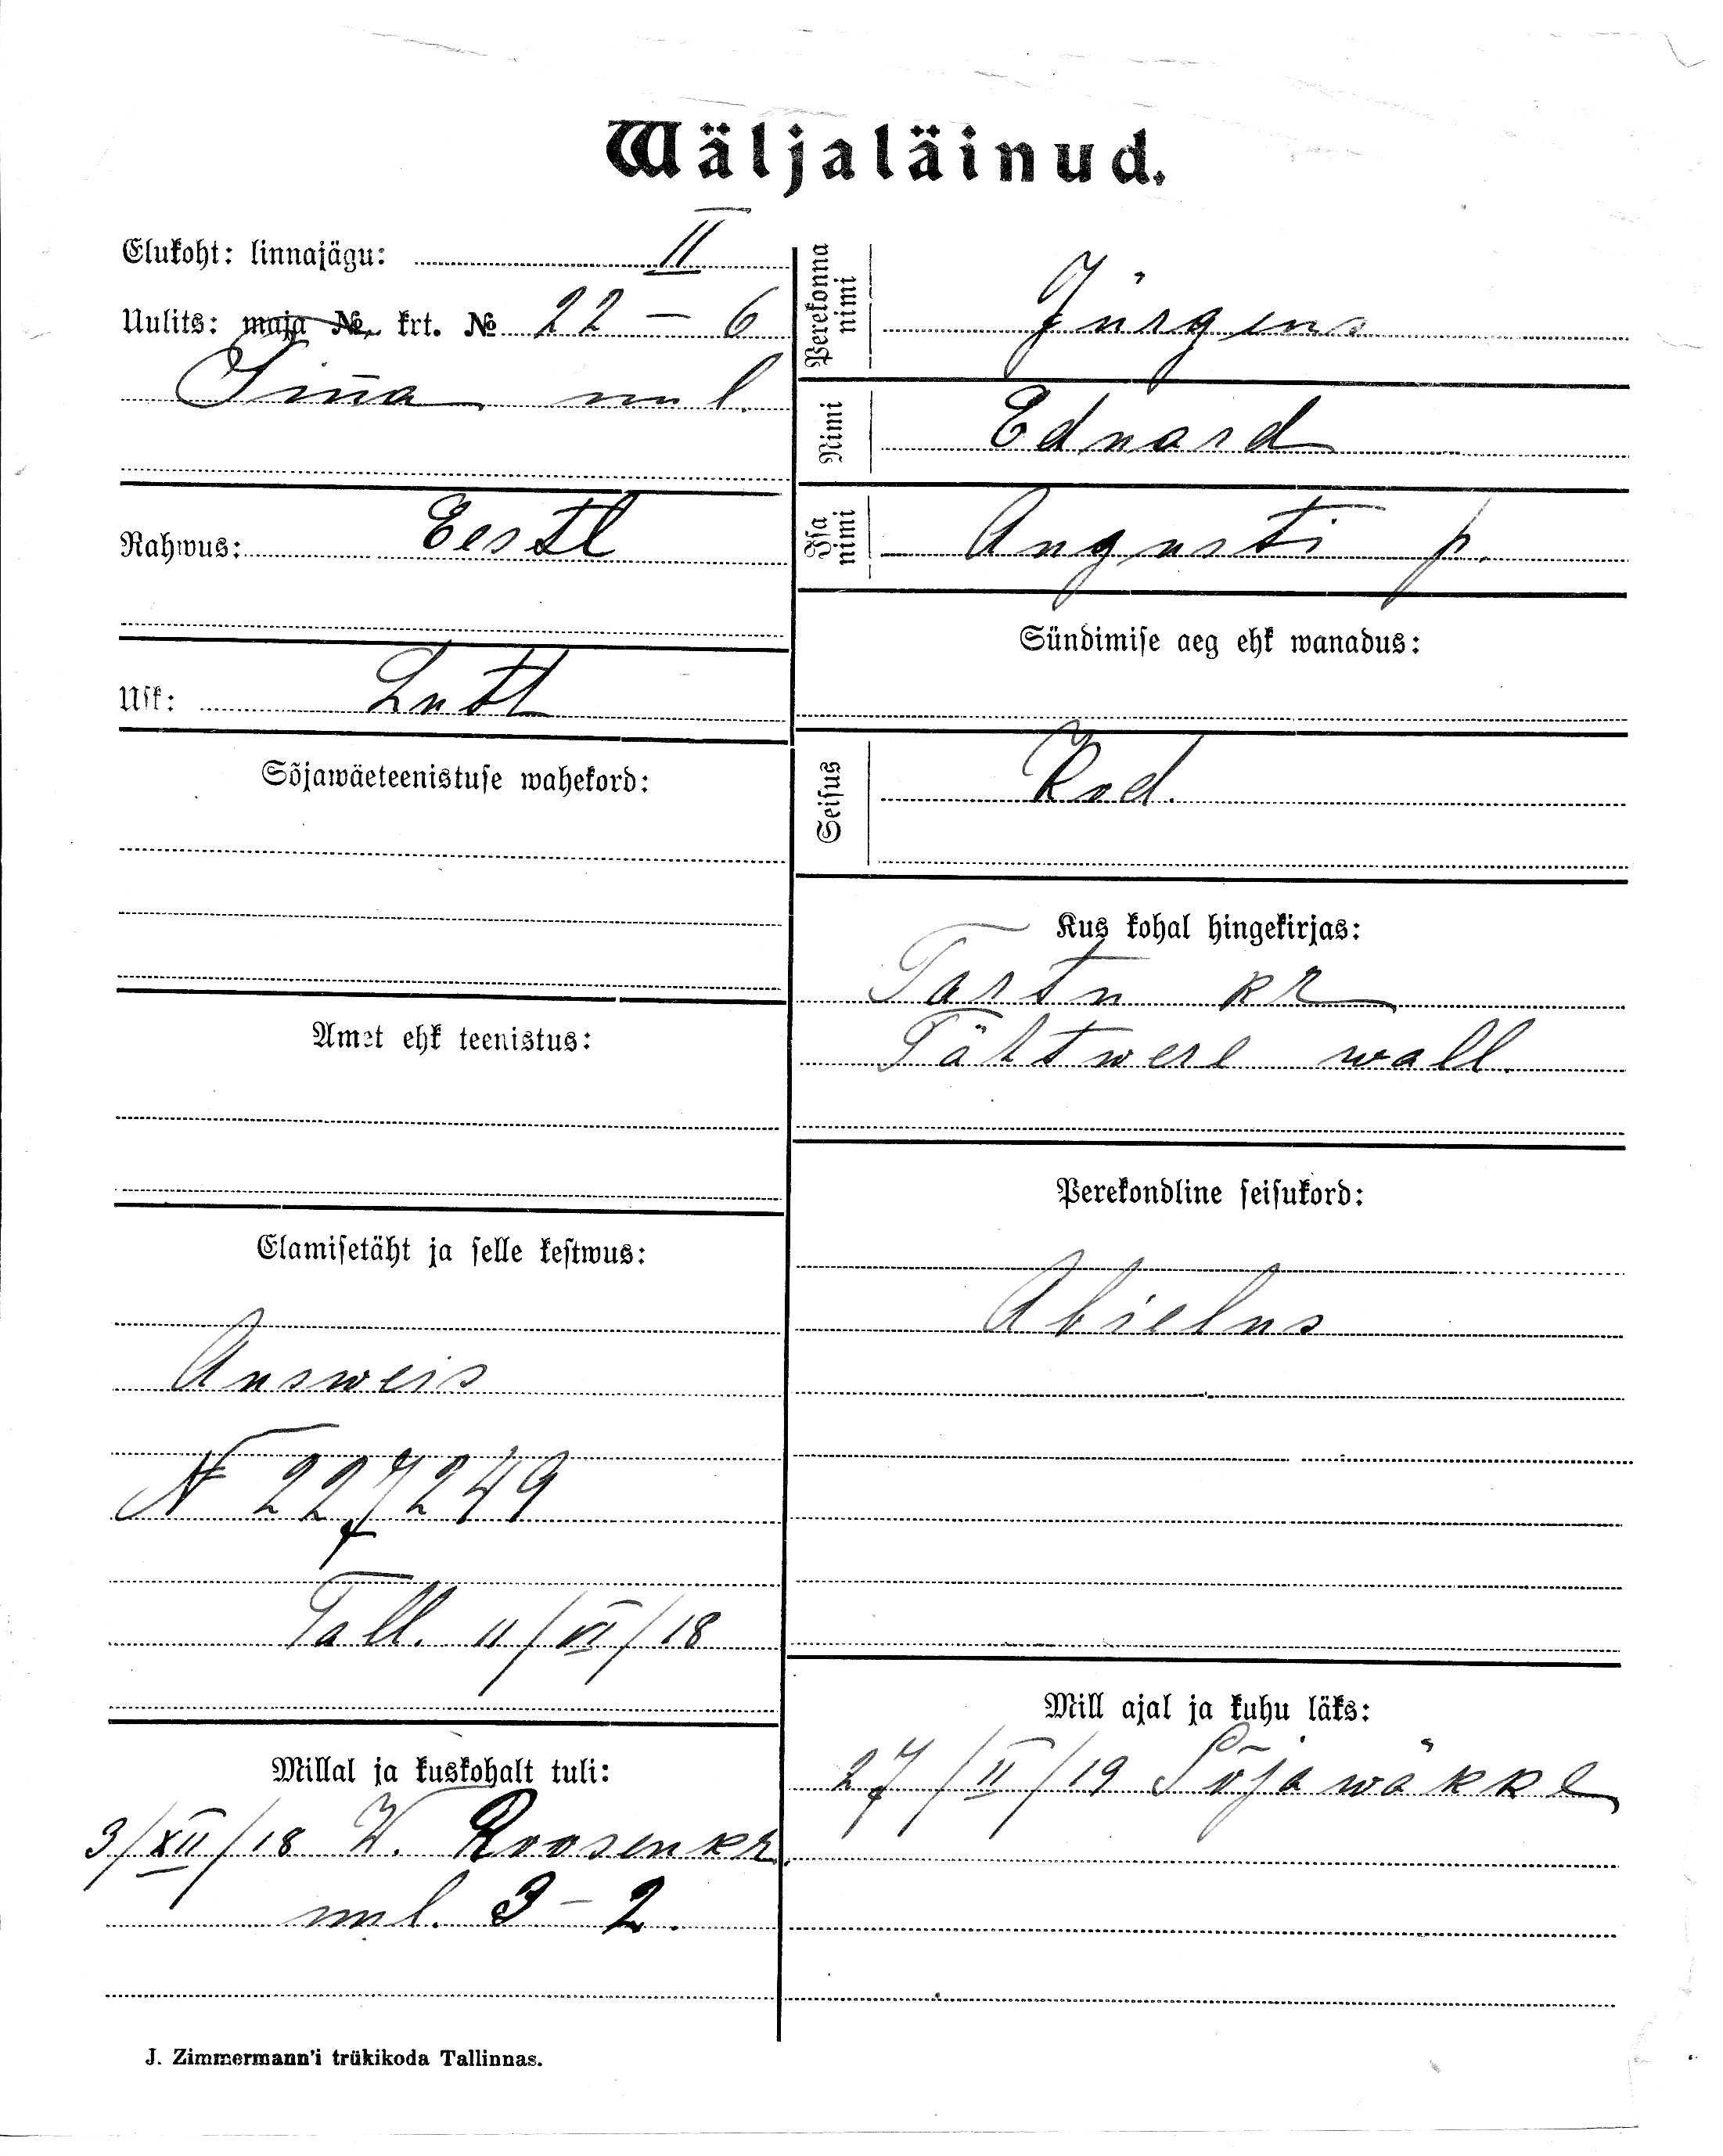 Wäljaläinud.
Elukoht: linnajägu: II
Uulits: maja №, krt. № 22 – 6
Tina uul.
Rahwus: Eestl
Usk: Lutt
Sõjawäeteenistuse wahekord:
Amet ehk teenistus:
Elamisetäht ja selle kestwus:
Ausweis
N 227249
Tall. 11/VI/18
Millal ja kuskohalt tuli:
3/XII/18 W. Roosenkr.
uul. 3 – 2.
Perekonna nimi
Jürgens
Nimi
Eduard
Isa nimi
Augusti p.
Sündimise aeg ehk wanadus:
Seisus
Kod.
Kus kohal hingekirjas:
Tartu kr
Tähtwere wall.
Perekondline seisukord:
Abielus
Mill ajal ja kuhu läks:
27/II/19 Sõjawäkke
J. Zimmermann'i trükikoda Tallinnas.